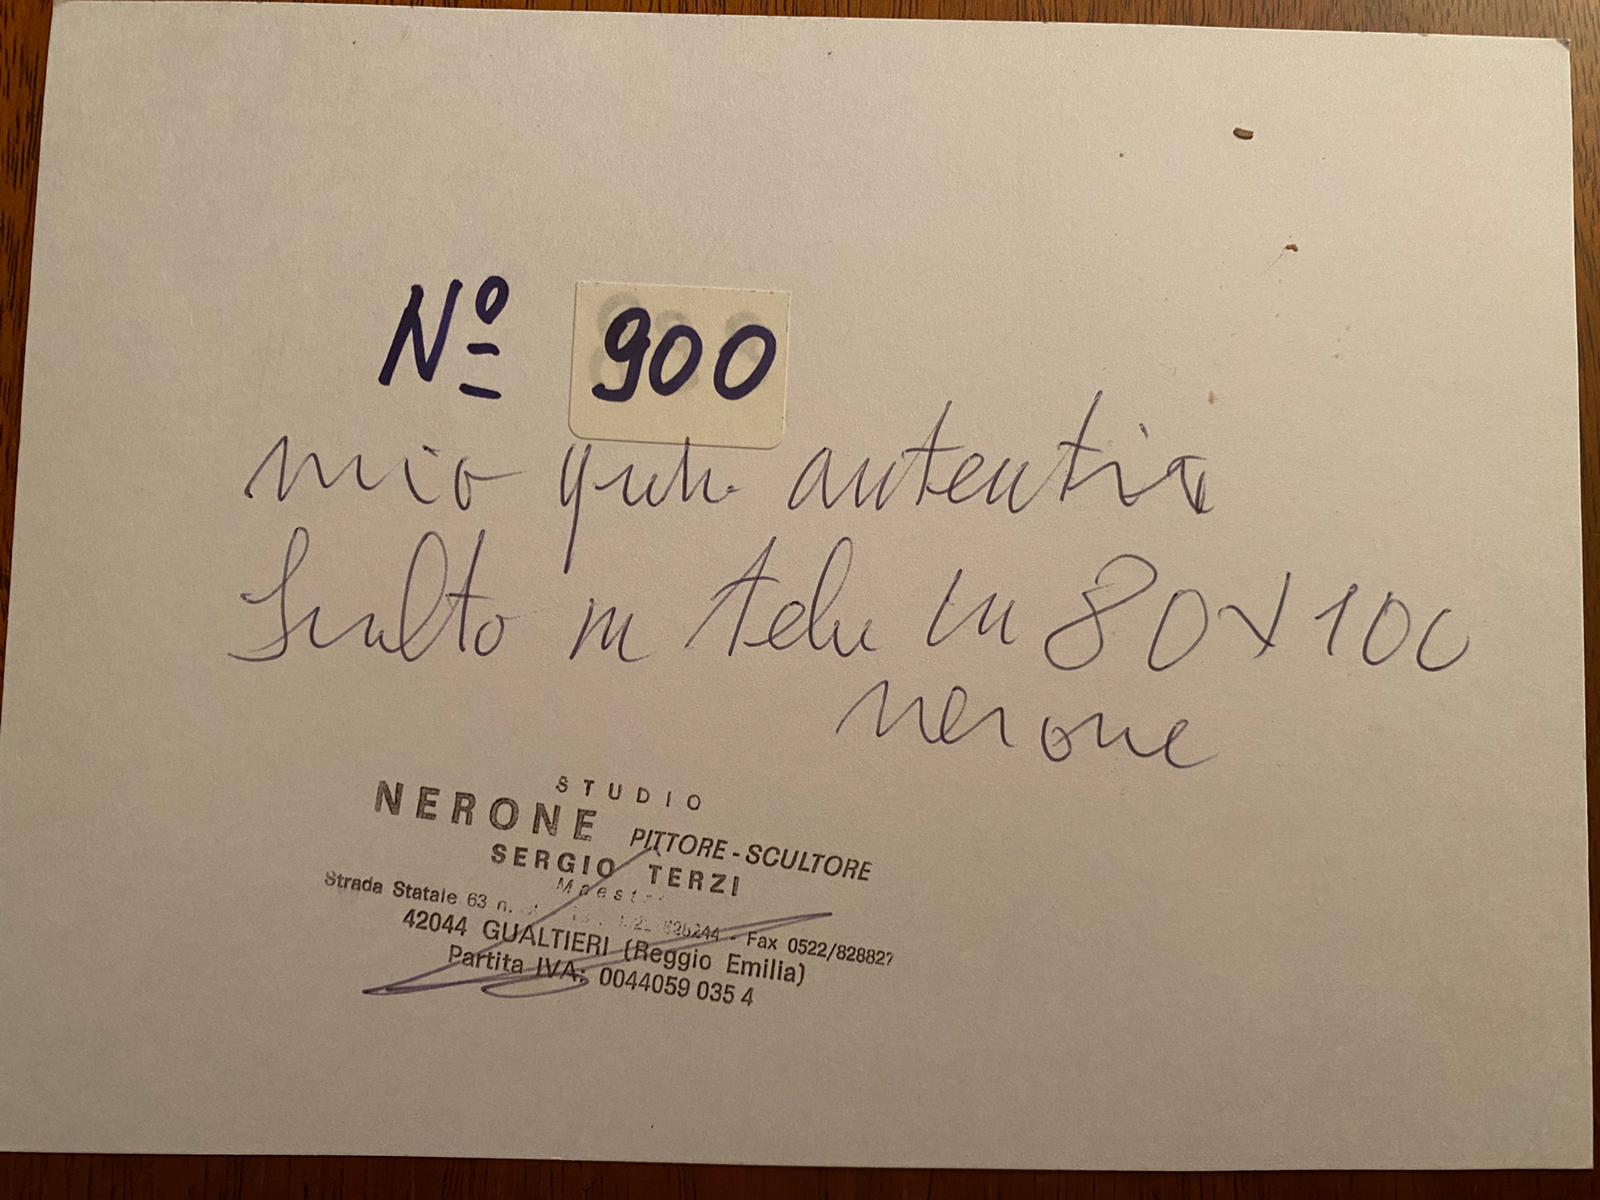 Nº 900
mio autentico
su tela cm 80x100
nerone
STUDIO
NERONE PITTORE-SCULTORE
SERGIO TERZI
Strada Statale 63 n. - Fax 0522/828827
42044 GUALTIERI (Reggio Emilia)
Partita IVA: 0044059 035 4